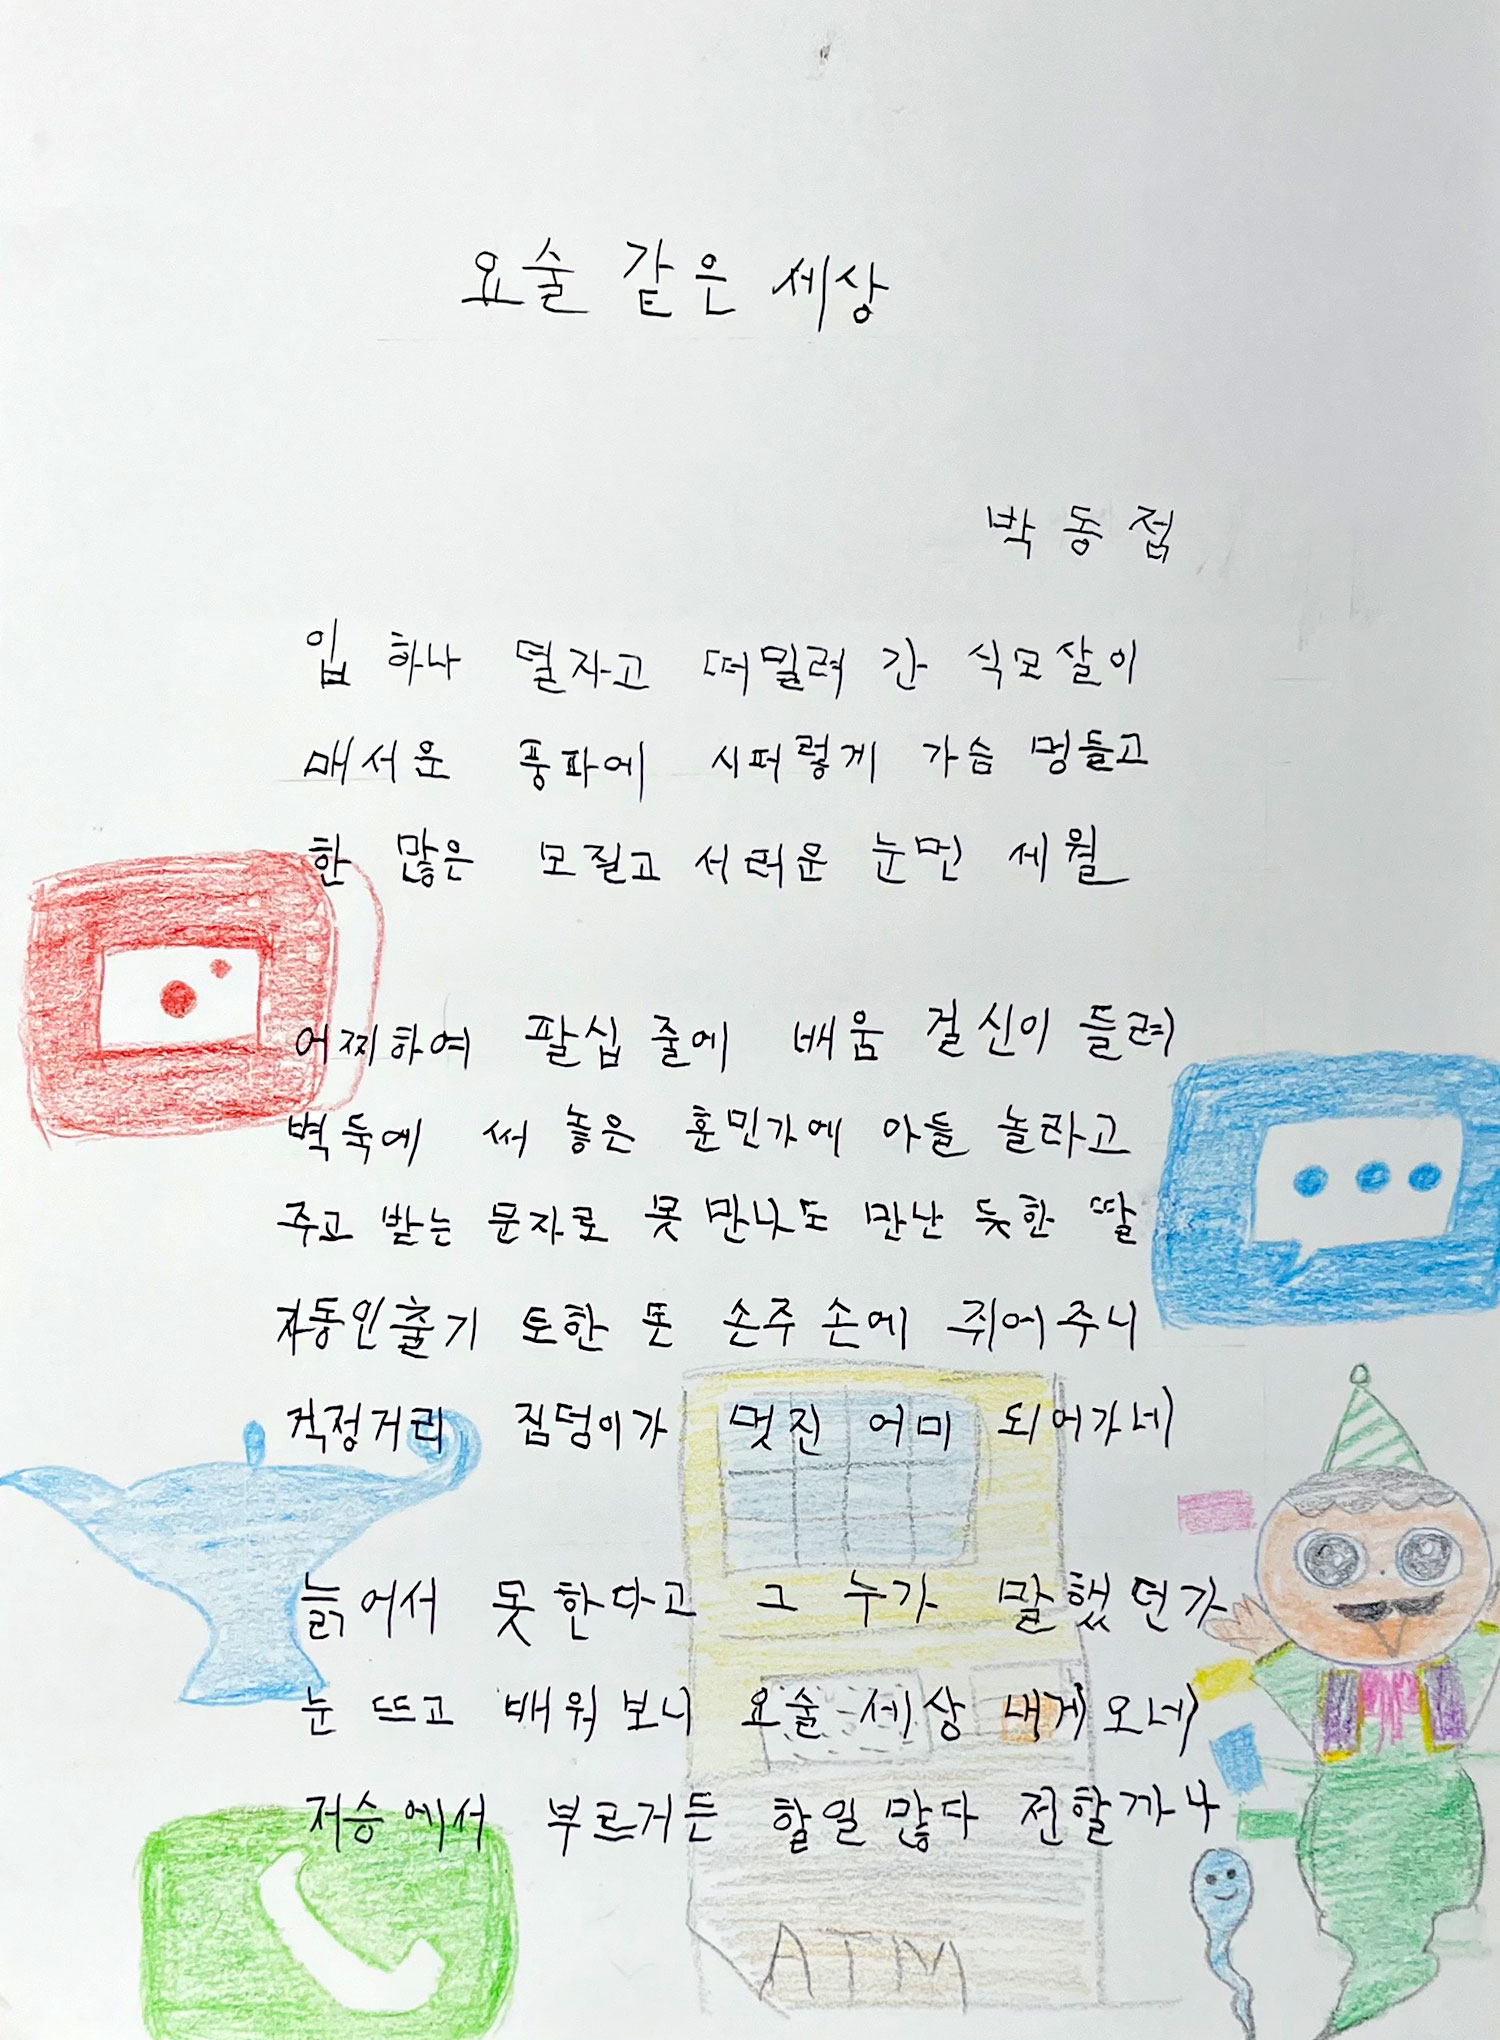 요술 같은 세상
박동점
입 하나 덜자고 떠밀려 간 식모살이
매서운 풍파에 시퍼렇게 가슴 멍들고
한 많은 모질고 서러운 눈먼 세월
어찌하여 팔십 줄에 배움 걸신이 들려
벽둑에 써 놓은 훈민가에 아들 놀라고
주고 받는 문자로 못 만나도 만난 듯한 딸
자동인출기 토한 돈 손주 손에 쥐어주니
걱정거리 짐덩이가 멋진 어미 되어가네
늙어서 못한다고 그 누가 말했던가
눈 뜨고 배워보니 요술 세상 내게오네
저승에서 부르거든 할일많다 전할까나
ATM